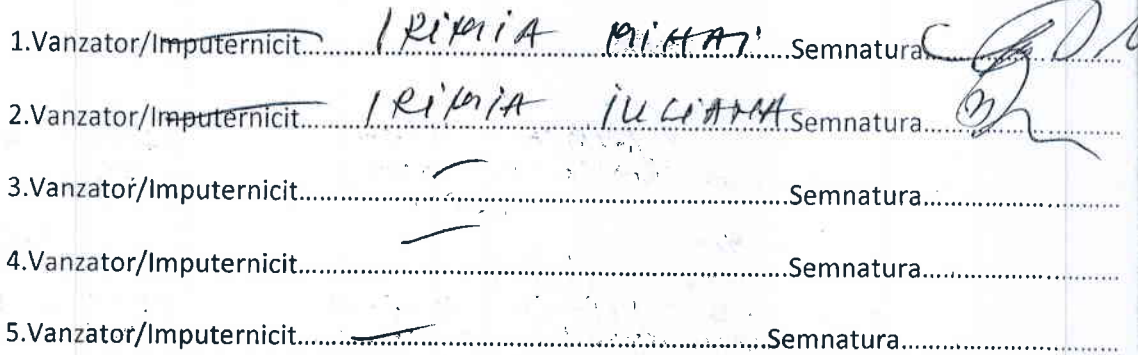 1.Vanzator/Imputernicit........IRIMIA MIHAI........Semnatura........
2.Vanzator/Imputernicit........IRIMIA IULIANA Semnatura........
3.Vanzator/Imputernicit........................Semnatura........
4.Vanzator/Imputernicit........................Semnatura........
5.Vanzator/Imputernicit........................Semnatura........